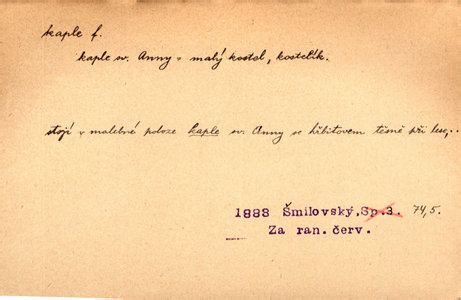 kaple f.
kaple sv. Anny = malý kostel, kostelík.
stojí v malebné poloze kaple sv. Anny se hřbitovem těsně při lese,..
1883 Šmilovský, Sp.3. 74,5.
Za ran. červ.